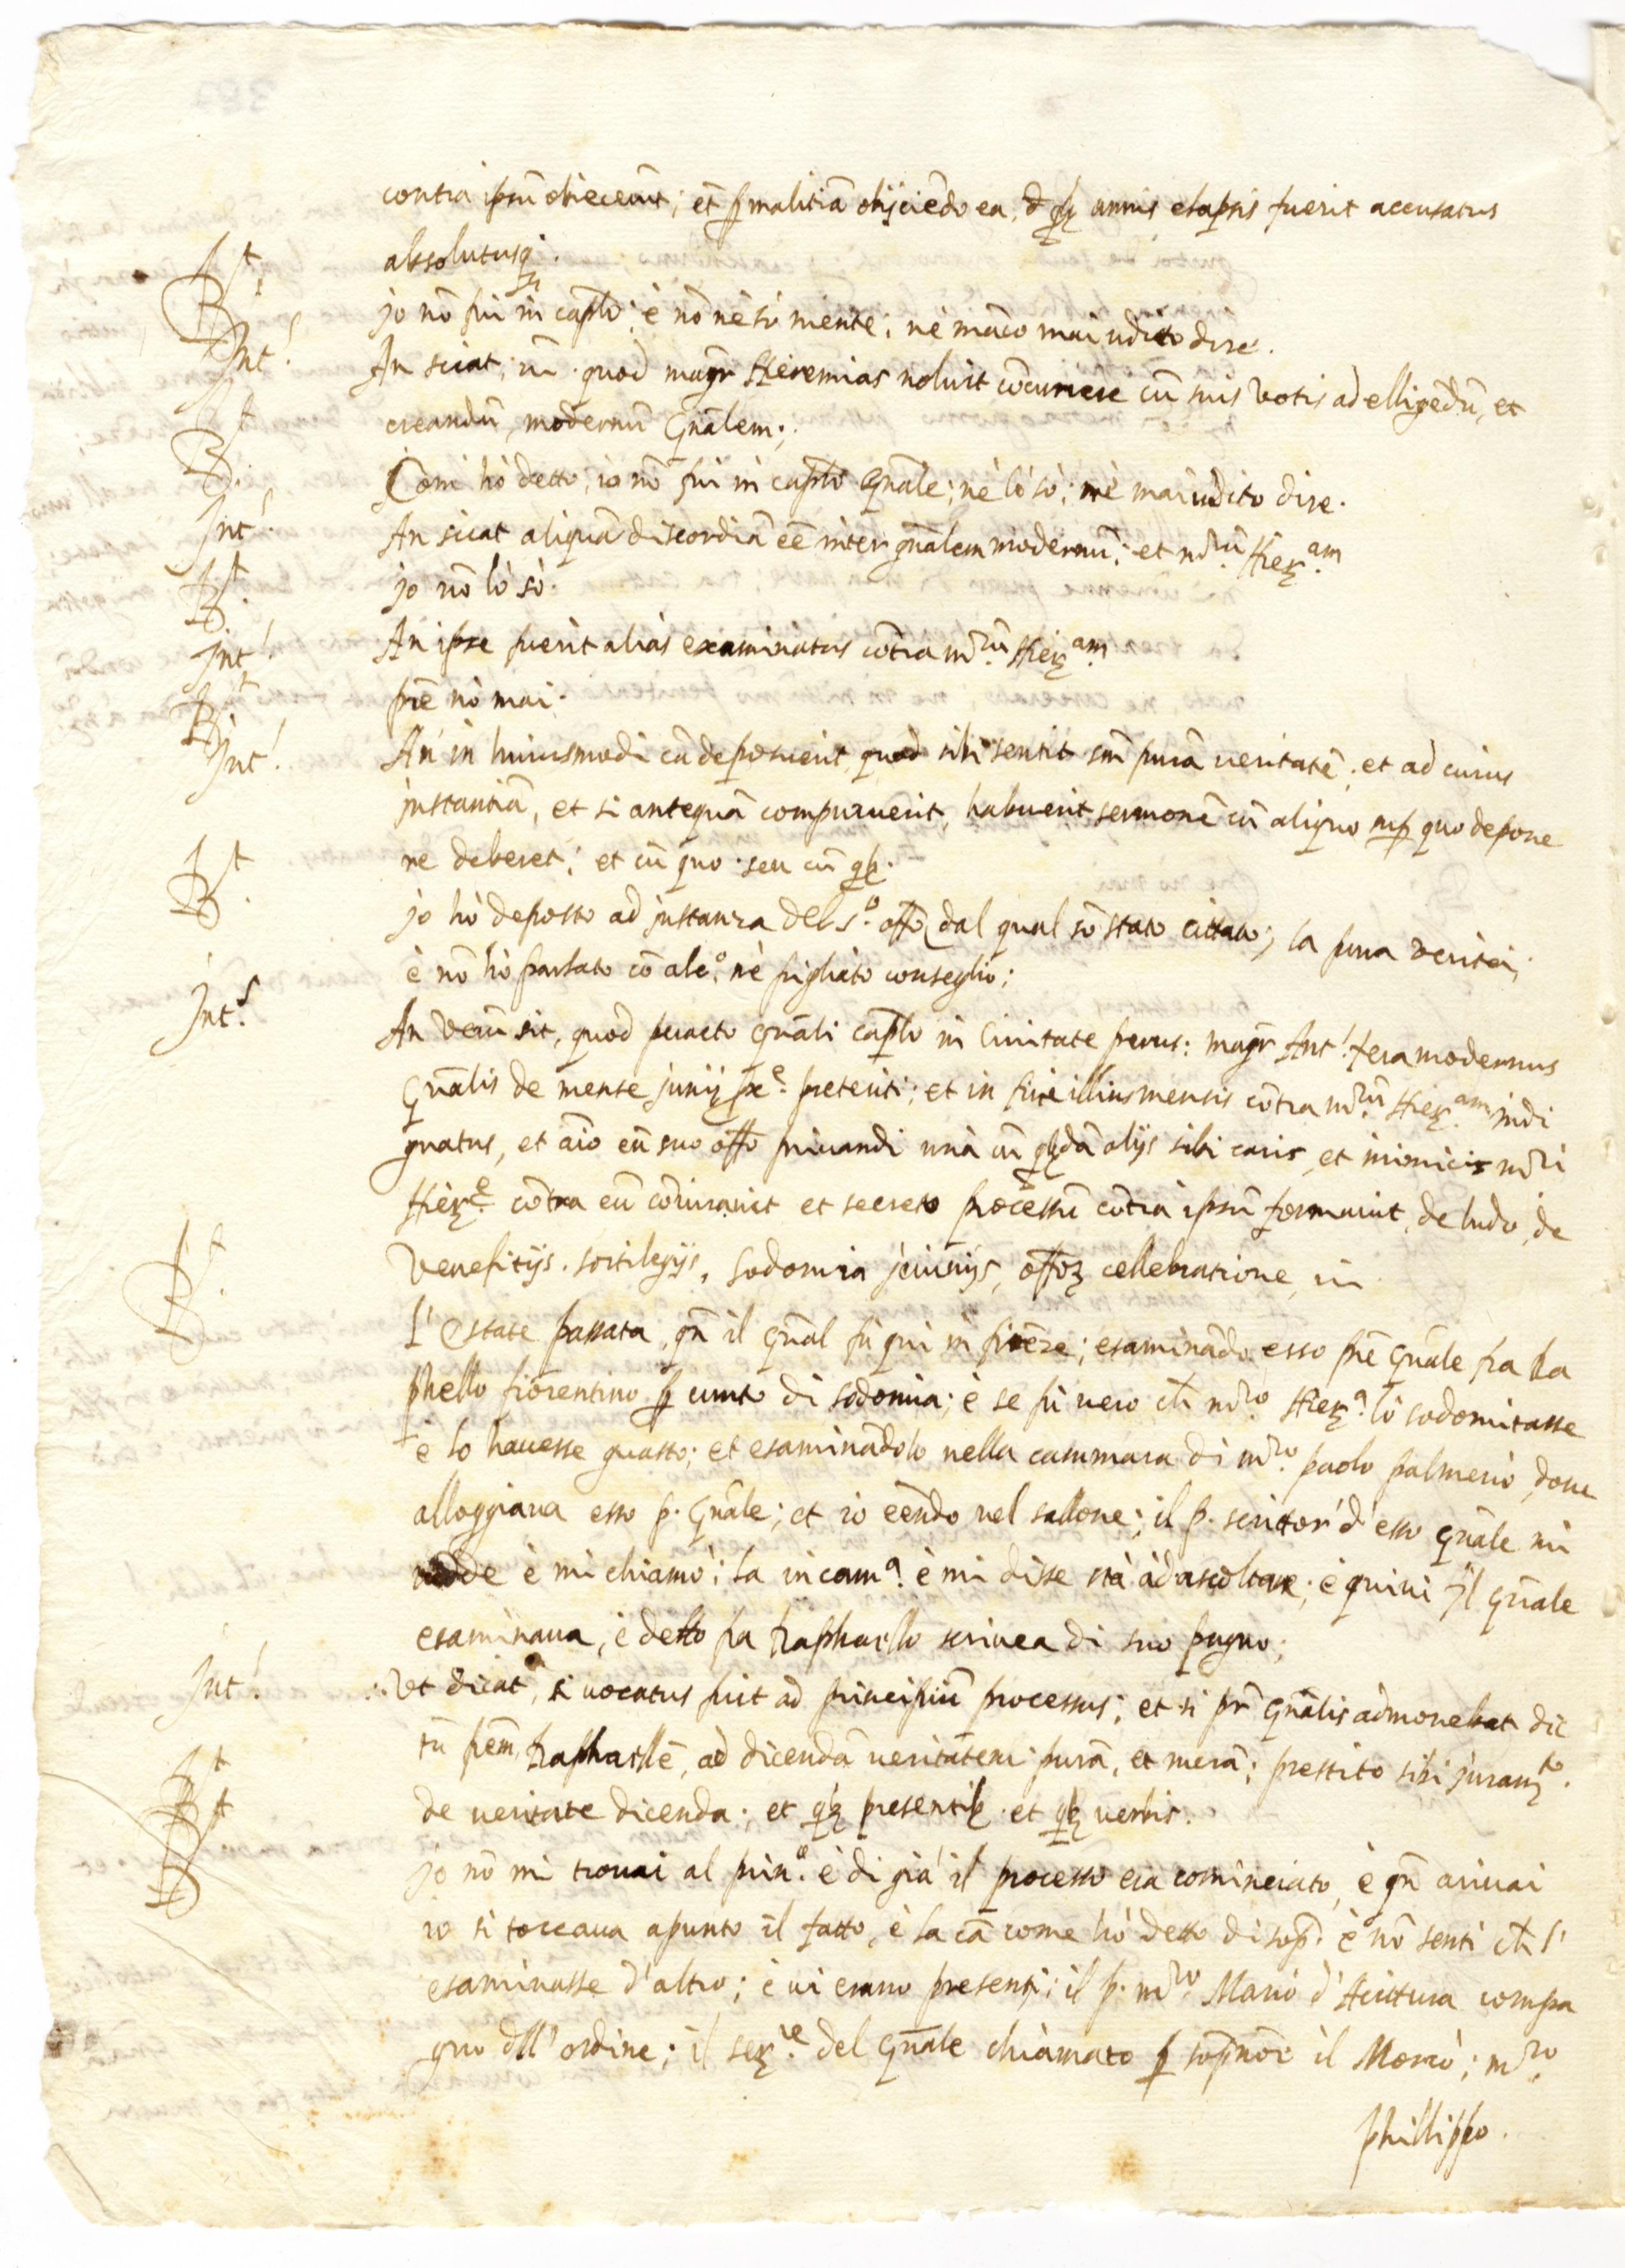 contra ipsũ obiecerint; et̃ p malitiã obijciẽdo ea, d qbꝫ annis elapsis fuerit accusatus
absolutusqꝫ.
Rt. jo nõ fui in caplo; è nõ nè sò niente; nè mãco mai udito dire.
Int.s An sciat, ut̃. quod magr Hieremias noluit cõcurrere cũ suis votis ad elligẽdũ, et
creandũ, modernũ Gnãlem;.
Rt. Com' hò detto, io nõ fui in caplo Gnãle; nè lò sò; nè mai udito dire.
Int.s An sciat aliquã discordiã eẽ inter gnãlem modernũ; et mrũ. Hierꝫam
Rt. jo nõ lò sò.
Int.s An ipse fuerit aliàs examinatus cõtra mrũ. Hierꝫam.
Rt. prẽ nò mai.
Int.s An' in huiusmodi cã deposuerit, quod sibi sentit sm̃ purã veritatẽ. et ad cuius
jnstantiã, et si antequã compuruerit, habuerit sermonẽ cũ aliquo sup quo depone
re deberet; et cũ quo. seu cũ qbꝫ.
Rt. jo hò deposto ad jnstanza del S.o offo dal qual sõ stato cittato; la pura verità;
è nõ hò parlato cõ alc.o nè pigliato conseglio;
Int.s An verũ sit, quod peracto gnãli caplo in Ciuitate perus: magr Ant. fera modernus
Gnãlis de mense junij px.e preteriti; et in fine illius mensis cõtra mrũ. Hierꝫam jndi
gnatus, et aĩo eũ suo offo priuandi unà cũ qbꝫdã alijs sibi caris, et inimicis mri
Hierꝫe. cõtra eũ cõiurauit et secreto processũ cõtrà ipsũ formauit, de ludo, de
Venefitijs. sortilegijs, sodomia jeiunijs, offoꝫ cellebratione, ut̃
Rt. L'estate passata, qñ il gnãl fù qui in firẽze; esaminãdo esso prẽ Gnãle fra Ra
phello fiorentino p cunto di sodomia; è se fù vero ch̃ mro. Hierꝫa. lò sodomitasse
è lo hauesse guasto; et esaminãdolo nella cammara di mro. paolo palmerio, doue
alloggiaua esso p. Gnãle; et io eẽndo nel sallone; il p. scrittor' d'esso gnãle mi
vedde è mi chiamò; la in cama. è mi disse stà àd ascoltare; è quiui jl gnãle
esaminaua, è detto fra Raphaello scriuea di suo pugno;
Int.s Vt dicat, si vocatus fuit ad principiũ processus; et si pr̃ Gnãlis admonebat dic
tũ frẽm, Raphaelẽ, ad dicendã veritatem purã, et merã; prestito sibi juramto.
de veritate dicenda; et qbꝫ presentibꝫ. et qbꝫ verbis.
Rt. jo nõ mi trouai al prin.o è di già il processo era cominciato, è qñ ariuai
io si toccaua apunto il fatto, è la cã come hò detto di sop̃. è nõ senti ch̃ l'
esaminasse d'altro; è ui erano presenti; il p. mro. Mario d' Scrittura compa
gno dll' ordine; il serꝫre. del gnãle chiamato p sopñoẽ il Morrò; mro.
phillippo.